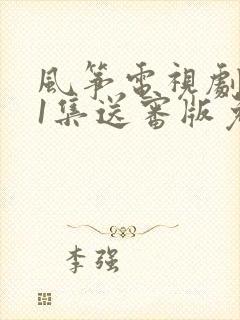 風箏電視劇
1集送審版
李强